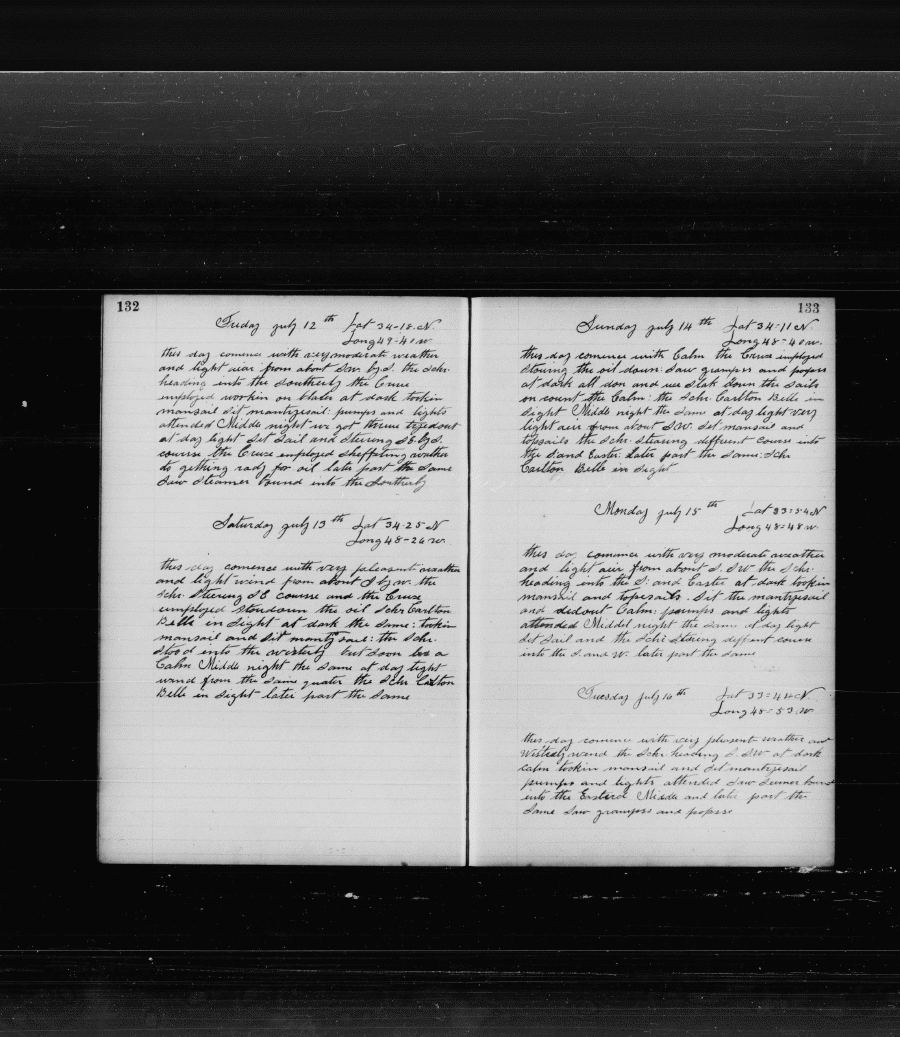 132
Friday july 12th Lat 34-18 N
Long 49-40 w.
this day comence with very moderate weather
and light wair from about S.w. by S. the schr.
heading into the Southerly the Cruce
employed workin on blabs at dark tookin
mansail Sit mantrysail: pumps and lights
attended Middle night we got threue
at day light Sit Sail and Stering S.E. by S.
courrse the Cruce employed
to gething rady for oil late part the Same
Saw Steamer bound into the Southerly
Saturday july 13th Lat 34-25 N
Long 48-24 w.
this day comence with very pleasent weather
and light wind from about S by w. the
schr. Steering S E course and the Cruce
employed stoudown the oil Schr. Carlton
Belle in Sight at dark the Same: tookin
mansail and Sit mantrysail: the Schr.
Stood into the westerly but Soon be a
Calm Middle night the Same at day light
wind from the Same quater the Schr Calton
Belle in Sight later part the Same
133
Sunday july 14th Lat 34-11 N
Long 48-40 w.
this day comence with Calm the Cruce employed
Stouing the oil down: Saw grampers and popers
at dark all don and we Slak down the Sails
on count the Calm: the Schr. Carlton Belle in
Sight Middle night the Same at day light very
light aeir from about S.W. Sit mansail and
topsails the Schr. Stering deffrent course into
the S. and Easter: late part the Same: Schr
Carlton Belle in Sight
Monday july 15th Lat 33=54 N
Long 48=48 w.
this day comance with very moderate weather
and light aeir from about S. SW the Schr.
heading into the S. and Easter at dark tookin
mansail and topesails. Sit the mantrysail
and didout Calm: pumps and lights
attended Middel night the Same at day light
Sit Sail and the Schr Stering deffrent course
into the S. and W. later part the Same
Tuesday july 16th Lat 33=44 N
Long 48=53 W
this day comence with very pleasent weather and
Westerly wind the Schr. heading S. SW at dark
Calm tookin mansail and Sit mantrysail
pumps and lights attended Saw Steamer bound
into the Easterd Middle and later part the
Same Saw grampers and popors